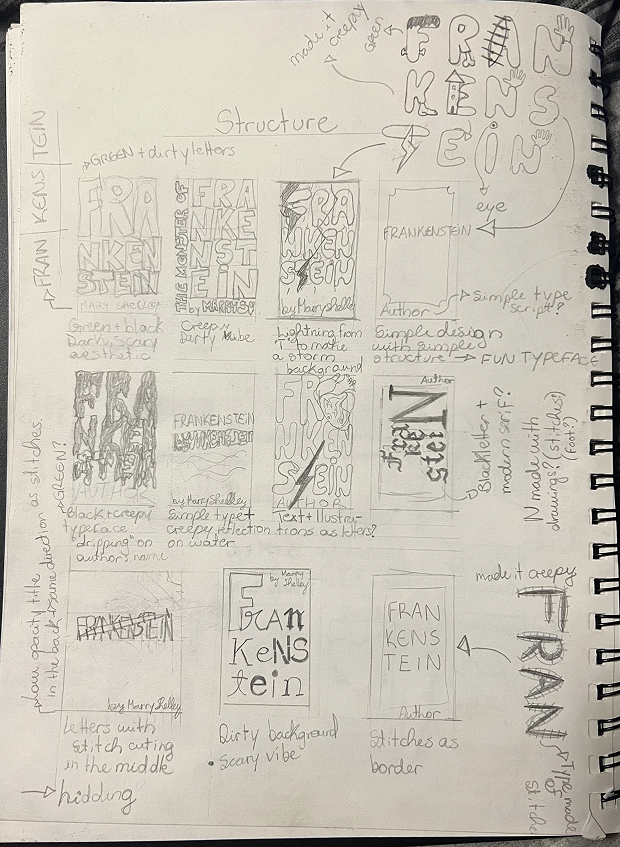 made it
creepy
green
FRAN
KENS
TEIN
eye
Structure
FRAN KENS TEIN
GREEN + dirty letters
FRA
NKEN
STEIN
MARY SHELLEY
Green + black
Dark, Scary
aesthetic
THE MONSTER OF
FRA
NKE
NST
EiN
Creepy
Dirty Vibe
FRA
NKEN
STEIN
by Marry Shelley
Lightning from
"T" to make
a storm
background
FRANKENSTEIN
Author
Simple type
script?
Simple design
with simple
structure! → FUN TYPEFACE
GREEN?
AUTHOR
Black + creepy
typeface
"dripping" on
author's name
FRANKENSTEIN
by Marry Shelley
Simple type +
creepy reflection
on water
FRA
NKEN
STEIN
AUTHOR
Text + Illustra-
tions as letters?
Author
Fra
ken
stei
N
Blackletter +
modern serif?
N made with
drawings? (stitches)
foot?)
Low opacity title
in the back + same direction as stitches.
FRANKENSTEIN
by Marry Shelley
Letters with
stitch cuting
in the middle
→ hidding
by Marry
Shelley
Fran
KeNS
tein
Dirty background
• Scary vibe
FRAN
KENS
TEIN
Author
Stitches as
border
made it creepy
FRAN
Type made
of